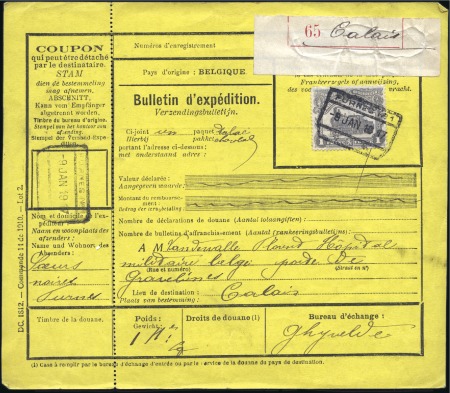 65 Calais
COUPON
qui peut être détaché
par le destinataire.
STAM
dien de bestemmeling
mag afnemen.
ABSCHNITT,
Kann vom Empfänger
abgetrennt worden.
Timbre du bureau d'origine
Stempel der Versend-Expedition.
9 JAN 19
Nom et domicile de l'expéditeur
Naam en woonplaats des afzenders:
Name und Wohnort des Absenders:
Sœurs
noires
Furnes
Timbre de la douane.
DC. 1812. — Commande 11 de 1910. — Lot 2.
Numéros d'enregistrement
Pays d'origine : BELGIQUE
Bulletin d'expédition.
Verzendingsbulletijn.
Ci-joint un paquet postal
Hierbij
portant l'adresse ci-dessous:
met onderstaand adres:
9 JAN
Valeur déclarée:
Aangegeven waarde:
Montant du remboursement:
Nombre de déclarations de douane (Aantal tolaangiften):
Nombre de bulletins d'affranchissement (Aantal frankeeringsbulletins):
A M
Hôpital
militaire belge porte De
(Rue et numéro) (Straat en nr)
Gravelines
Lieu de destination:
Plaats van bestemming:
Calais
Poids:
Gewicht:
Droits de douane (1)
Bureau d'échange:
Ghyvelde
(1) Case à remplir par le bureau d'échange d'entrée ou par le service de la douane du pays de destination.